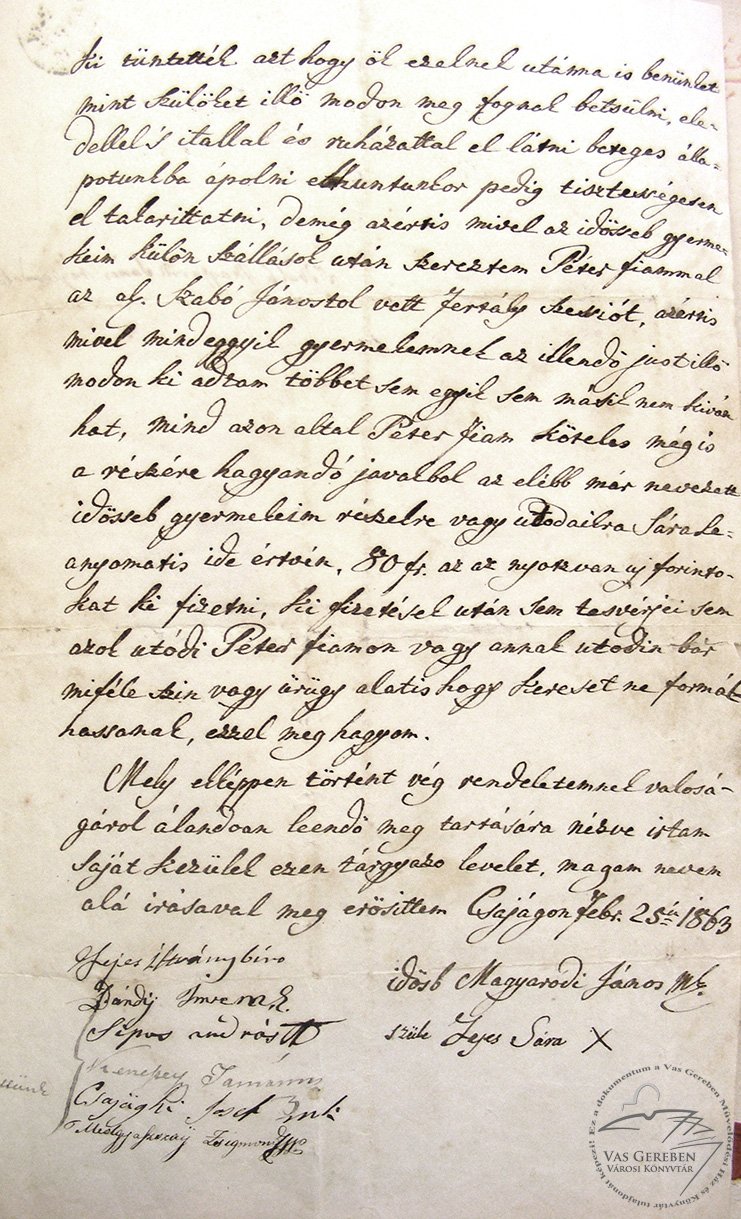 ki tüntették azt hogy ök ezelnek utánna is benünket
mint szülöket illö modon meg fognak betsülni, ele-
dellel s itallal és ruházattal el látni beteges álla-
potunkba ápolni elhuntunkor pedig tisztességesen
el takarittatni, demég azértis mivel az idösseb gyerme-
keim külön szállások után szereztem Péter fiammal
az ass. Szabó Jánostol vett fertály sessiót, azértis
mivel mindeggyik gyermekemnek az illendö just illö
modon ki adtam többet sem egyik sem másik nem kiván
hat, mind azon altal Péter fiam köteles mégis
a részére hagyandó javakbol az elöbb már nevezett
idösseb gyermekeim részekre vagy utodaikra Sára Le-
anyomatis ide értvén, 80 fr. az az nyotzvan uj forinto-
kat ki fizetni, ki fizetések után sem tesvérjei sem
azok utódi Péter fiamon vagy annak utodin bár
miféle szin vagy ürügy alatis hogy kereset ne formál
hassanak, ezzel meg hagyom.
Mely ekképpen történt vég rendeletemnek valosá-
gárol álandoan leendö meg tartására nézve irtam
saját kezülek ezen tárgyazo levelet, magam nevem
alá irásaval meg erösittem Csajágon febr. 25én 1863
Fejes Istvány biro
Bándij Imre mk.
Sipos András
idösb Magyarodi János mk.
szüle Fejes Sára X
Tamás
Csajághi Josef
Zsigmond
Ez a dokumentum a Vas Gereben Művelődési Ház és Könyvtár tulajdonát képezi!
VAS GEREBEN
VÁROSI KÖNYVTÁR